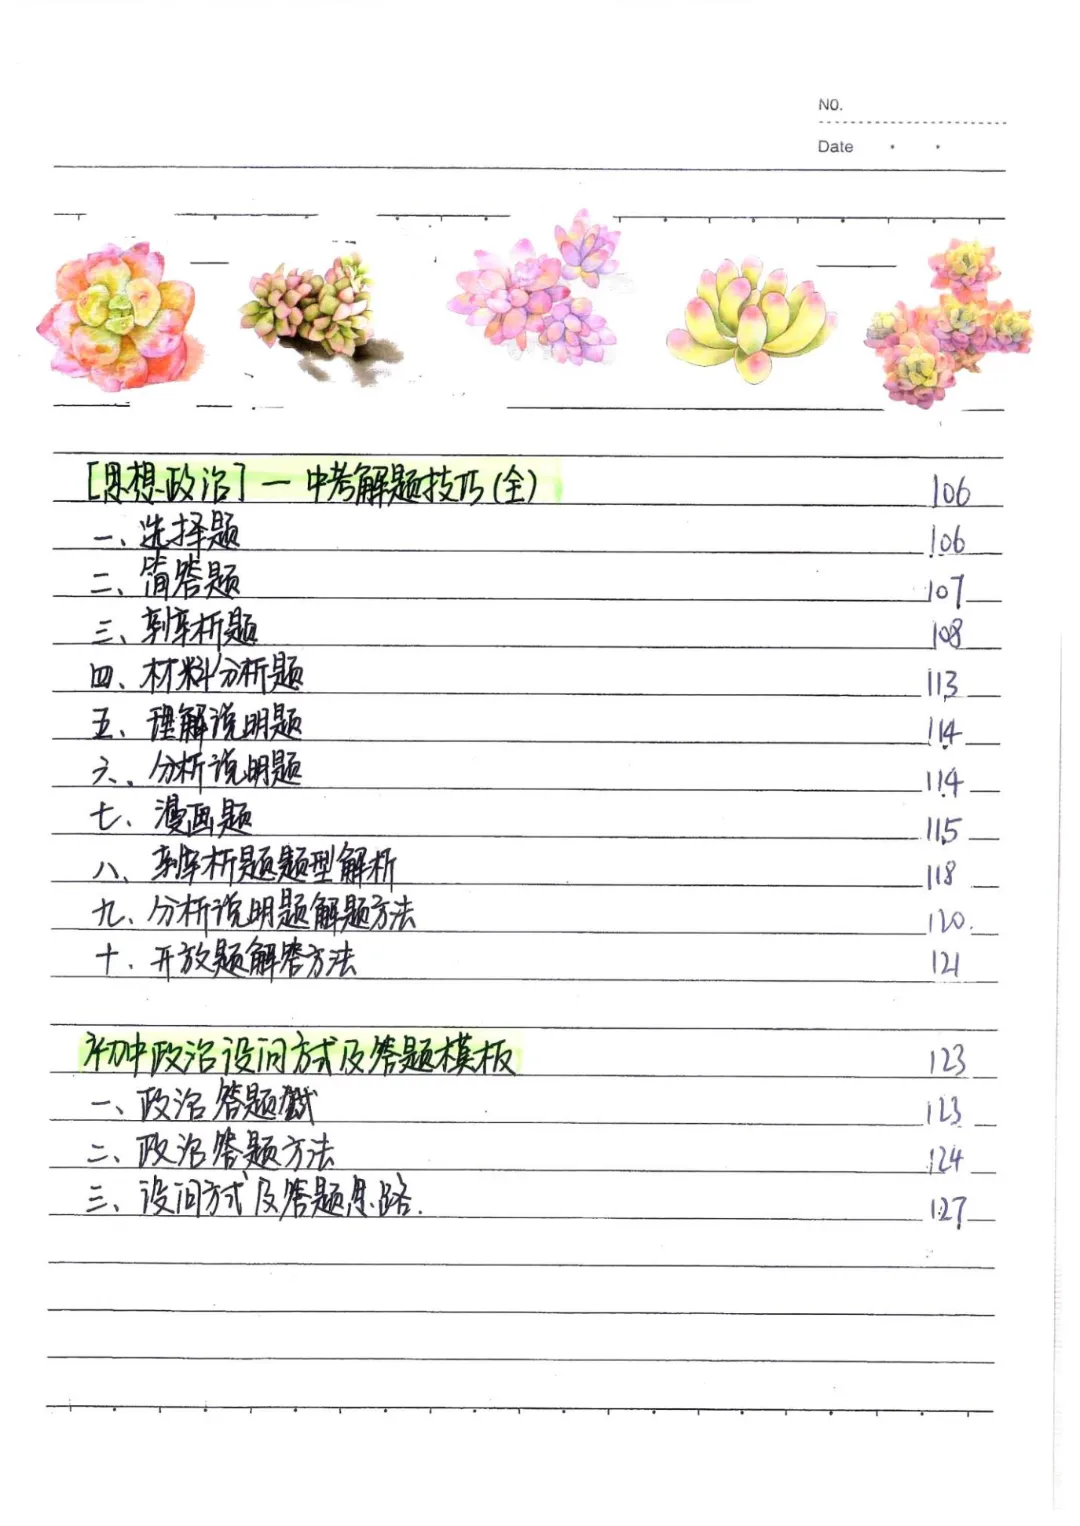 NO.
Date
[思想政治]一中考解题技巧(全) 106
一、选择题 106
二、简答题 107
三、辨析题 108
四、材料分析题 113
五、理解说明题 114
六、分析说明题 114
七、漫画题 115
八、辨析题题型解析 118
九、分析说明题解题方法 120
十、开放题解答方法 121
初中政治设问方式及答题模板 123
一、政治答题 123
二、政治答题方法 124
三、设问方式及答题思路. 127